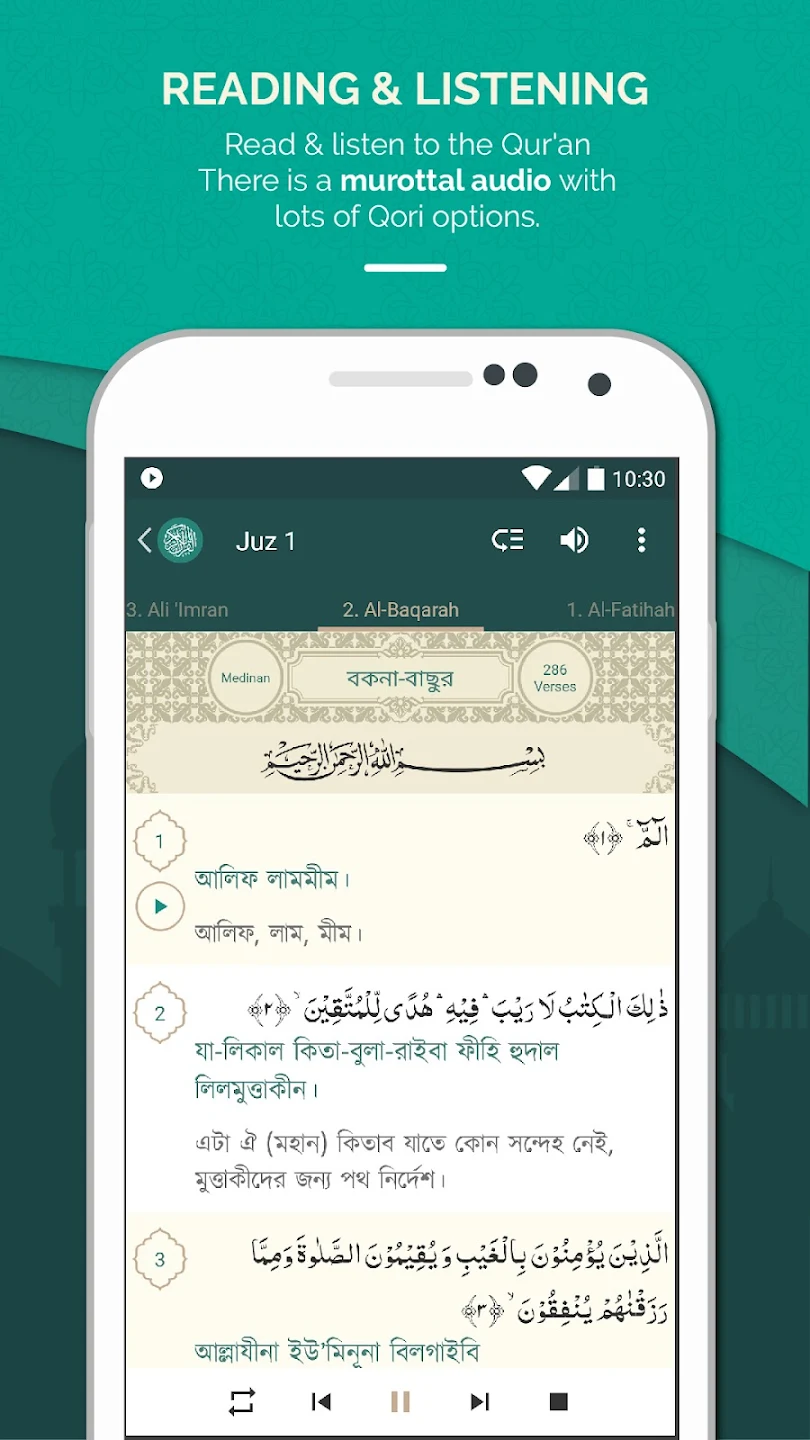 READING & LISTENING
Read & listen to the Qur'an
There is a murottal audio with
lots of Qori options.
10:30
Juz 1
3. Ali 'Imran
2. Al-Baqarah
1. Al-Fatihah
Medinan
বকনা-বাছুর
286
Verses
بِسْمِ اللهِ الرَّحْمٰنِ الرَّحِيْمِ
1
الٓمّٓ ۚ ﴿۱﴾
আলিফ লামমীম।
আলিফ, লাম, মীম।
2
ذٰلِكَ الْكِتٰبُ لَا رَيْبَ ۛ فِيْهِ ۛ هُدًى لِّلْمُتَّقِيْنَ ۙ ﴿۲﴾
যা-লিকাল কিতা-বুলা-রাইবা ফীহি হুদাল
লিলমুত্তাকীন।
এটা ঐ (মহান) কিতাব যাতে কোন সন্দেহ নেই,
মুত্তাকীদের জন্য পথ নির্দেশ।
3
الَّذِيْنَ يُؤْمِنُوْنَ بِالْغَيْبِ وَيُقِيْمُوْنَ الصَّلٰوةَ وَمِمَّا
رَزَقْنٰهُمْ يُنْفِقُوْنَ ۙ ﴿۳﴾
আল্লাযীনা ইউ’মিনূনা বিলগাইবি